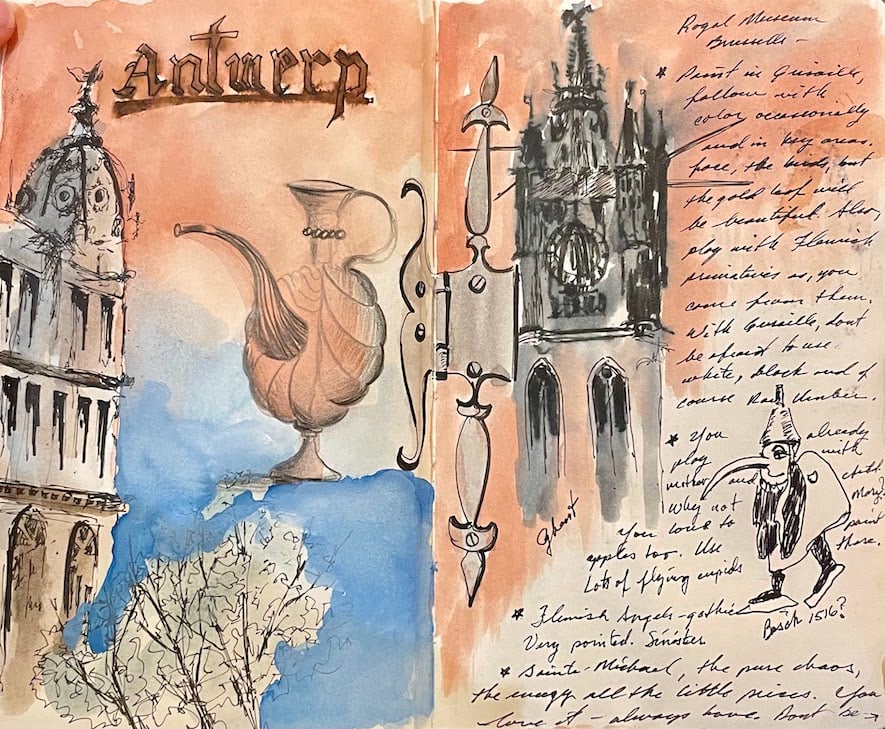 Antwerp
Royal Museum
Brussels -
* Paint in Grisaille,
follow with
color occasionally
and in key areas.
face, the birds, but
the gold leaf will
be beautiful. Also,
play with Flemish
primatives as, you
come from them.
With Grisaille, dont
be afraid to use
white, black and of
course Raw Umber.
* You already
play with
and cloth
Why not paint
you love to these.
apples too. Use
Lots of flying cupids
Ghent
Bosch 1516?
* Flemish Angels - gothic
Very pointed. Sinister
* Sainte-Michael, the pure chaos,
the energy all the little pieces. You
love it - always have. Dont be →